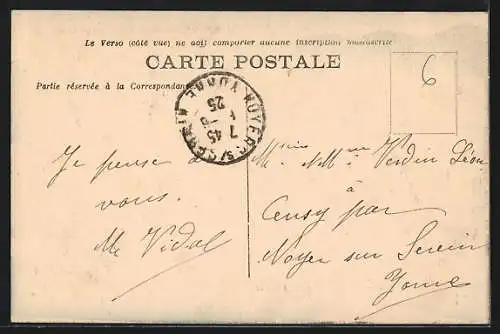 Le Verso (côté vue) ne doit comporter aucune inscription manuscrite
CARTE POSTALE
Partie réservée à la Correspondance
6
NOYERS S/ SEREIN YONNE
7 45
25
Je pense à
vous.
M Vidal
M. et Mme Verdin Léon
à
Censy par
Noyer sur Serein
Yonne